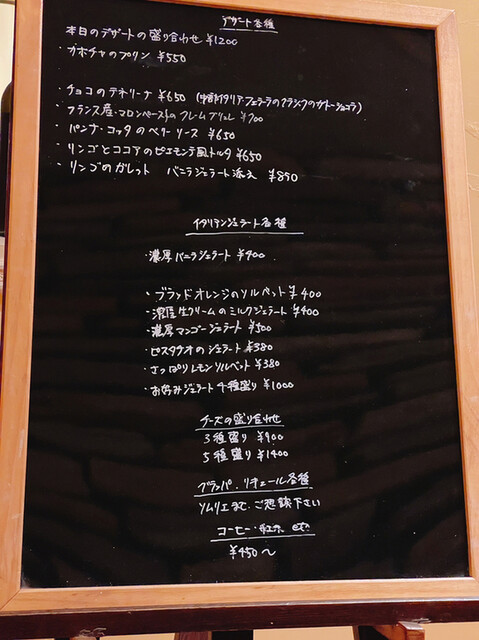 デザート各種
本日のデザートの盛り合わせ ¥1200
・カボチャのプリン ¥550
・チョコのテネリーナ ¥650 (中部イタリア・フェラーラのクラシックのガトーショコラ)
・フランス産・マロンペーストのクレームブリュレ ¥700
・パンナ・コッタのベリーソース ¥650
・リンゴとココアのピエモンテ風トルタ ¥650
・リンゴのガレット バニラジェラート添え ¥850
イタリアンジェラート各種
・濃厚バニラジェラート ¥400
・ブラッドオレンジのソルベット ¥400
・濃厚生クリームのミルクジェラート ¥400
・濃厚マンゴージェラート ¥500
・ピスタチオのジェラート ¥380
・さっぱりレモンソルベット ¥380
・お好みジェラート4種盛り ¥1000
チーズの盛り合わせ
3種盛り ¥900
5種盛り ¥1400
グラッパ・リキュール各種
ソムリエまで、ご相談下さい
コーヒー・紅茶
¥450〜